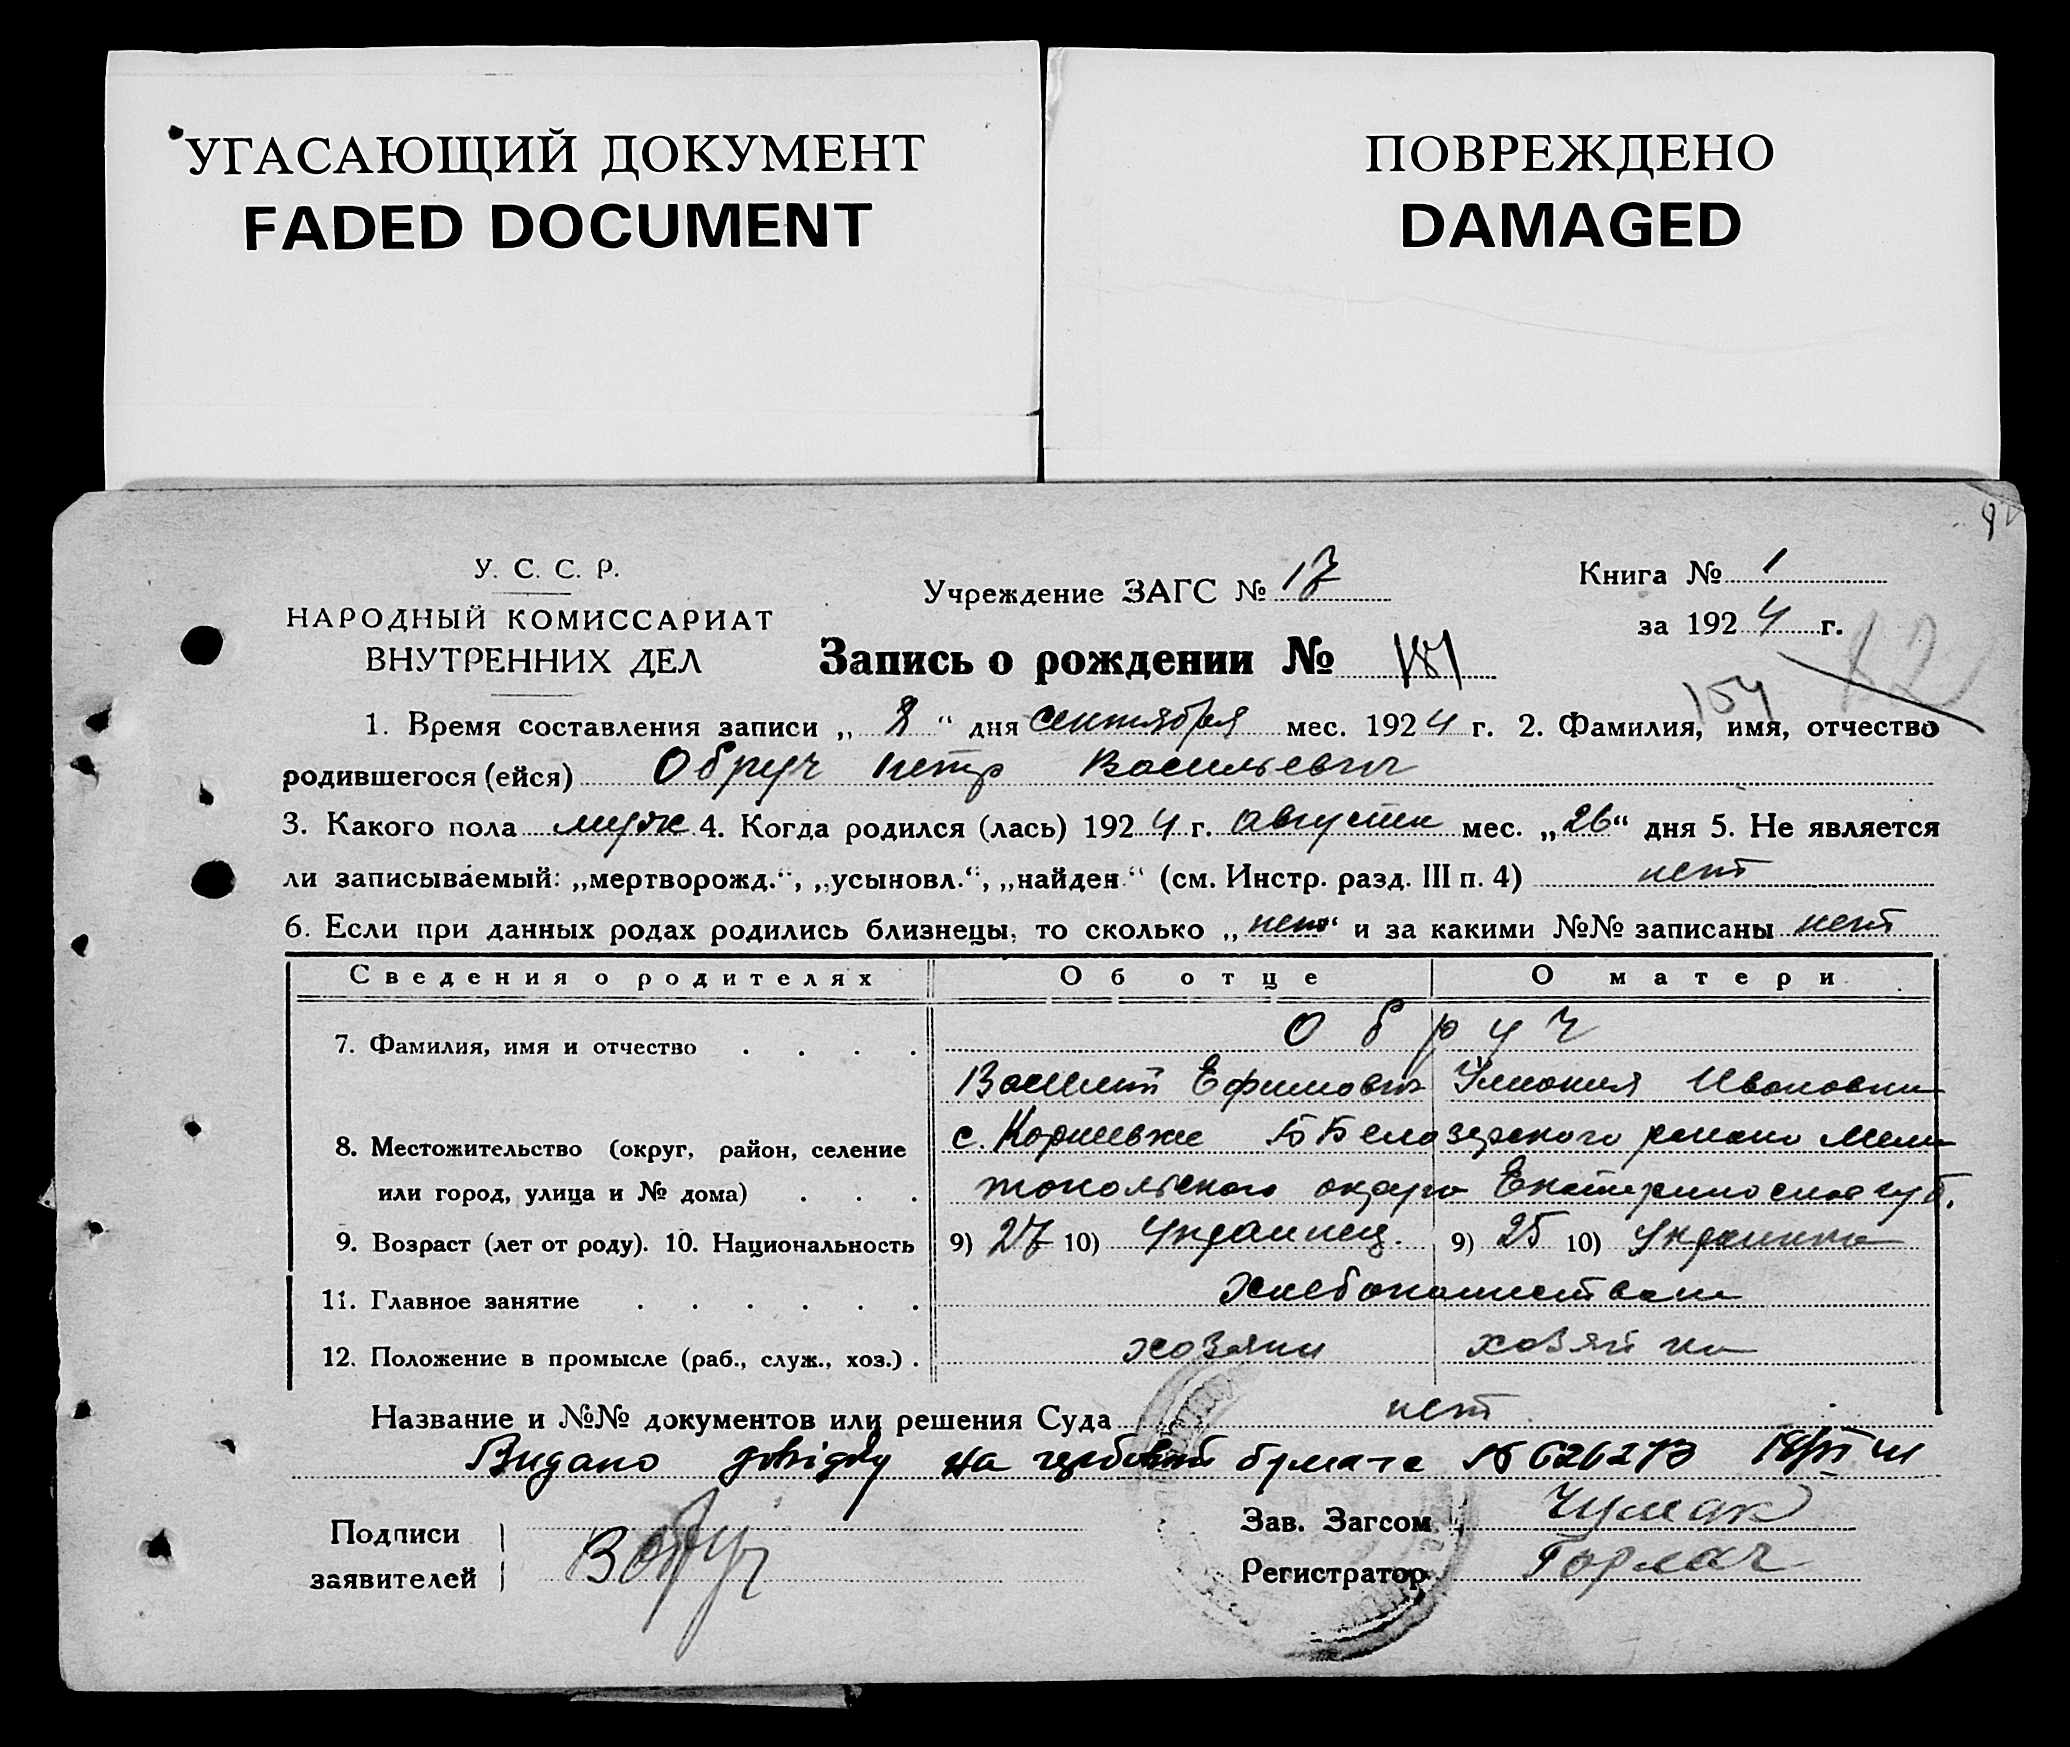 УГАСАЮЩИЙ ДОКУМЕНТ
FADED DOCUMENT
ПОВРЕЖДЕНО
DAMAGED
У. С. С. Р.
НАРОДНЫЙ КОМИССАРИАТ
ВНУТРЕННИХ ДЕЛ
Учреждение ЗАГС № 17
Книга № 1
за 1924 г.
82
Запись о рождении № 181
154
1. Время составления записи „ 2 “ дня сентября мес. 1924 г. 2. Фамилия, имя, отчество
родившегося (ейся) Обруч Петр Васильевич
3. Какого пола муж 4. Когда родился (лась) 1924 г. августа мес. „26“ дня 5. Не является
ли записываемый: „мертворожд.“, „усыновл.“, „найден“ (см. Инстр. разд. III п. 4) нет
6. Если при данных родах родились близнецы, то сколько „нет“ и за какими №№ записаны нет
Сведения о родителях Об отце О матери
7. Фамилия, имя и отчество Обруч
Василий Ефимович Ивановна
8. Местожительство (округ, район, селение с. Б Белозерского района Мели
или город, улица и № дома) топольского округа Екатеринослав губ.
9. Возраст (лет от роду). 10. Национальность 9) 27 10) Украинец 9) 25 10) Украинка
11. Главное занятие хлебопашество
12. Положение в промысле (раб., служ., хоз.) хозяин хозяйка
Название и №№ документов или решения Суда нет
Видано довідку на гербовой бумаге № 626273
Подписи
заявителей
ВОбруч
Зав. Загсом Чумак
Регистратор Горлач